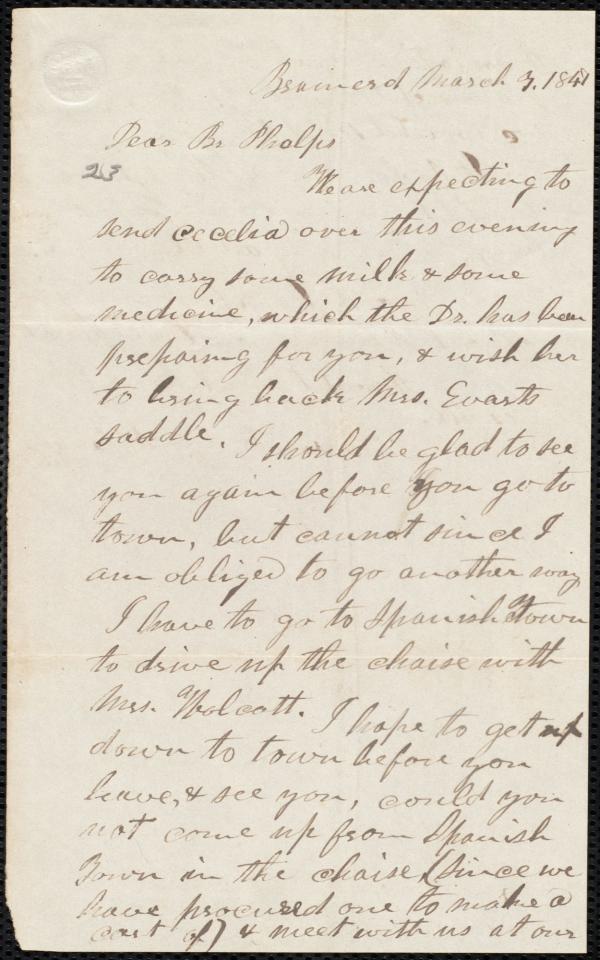 Brainerd March 3. 1841
Dear Br Phelps
23
We are expecting to
send Cecelia over this evening
to carry some milk & some
medicine, which the Dr. has been
preparing for you, & wish her
to bring back Mrs. Evarts
saddle. I should be glad to see
you again before you go to
town, but cannot since I
am obliged to go another way
I have to go to Spanishtown
to drive up the chaise with
Mrs. Wolcott. I hope to get
down to town before you
leave, & see you, could you
not come up from Spanish
Town in the chaise, (since we
have procured one to make a
cart of) & meet with us at our